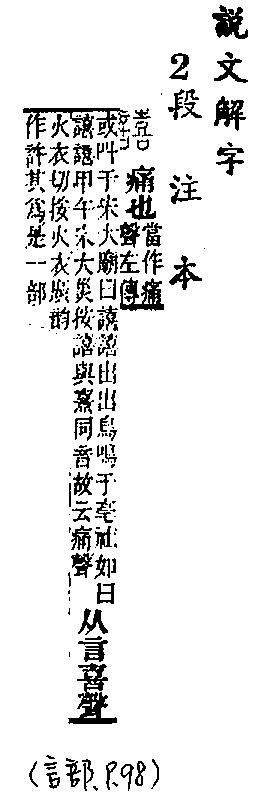 說文解字
2 段注本
譆
痛也
當作痛
聲左傳
或叫于宋大廟曰譆譆出出鳥鳴于亳社如曰
譆譆甲午宋大災按譆與熹同音故云痛聲
从言喜聲
火衣切按火衣韵
作許其爲是一部
(言部、P.98)